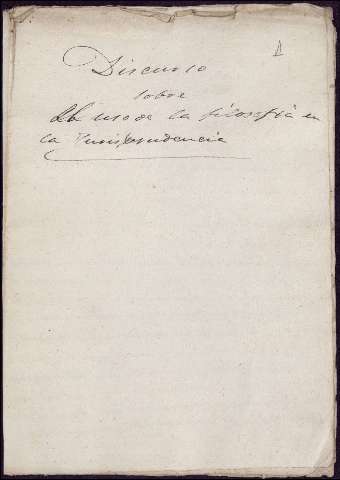 Discurso
sobre
El uso de la filosofia en
la Jurisprudencia